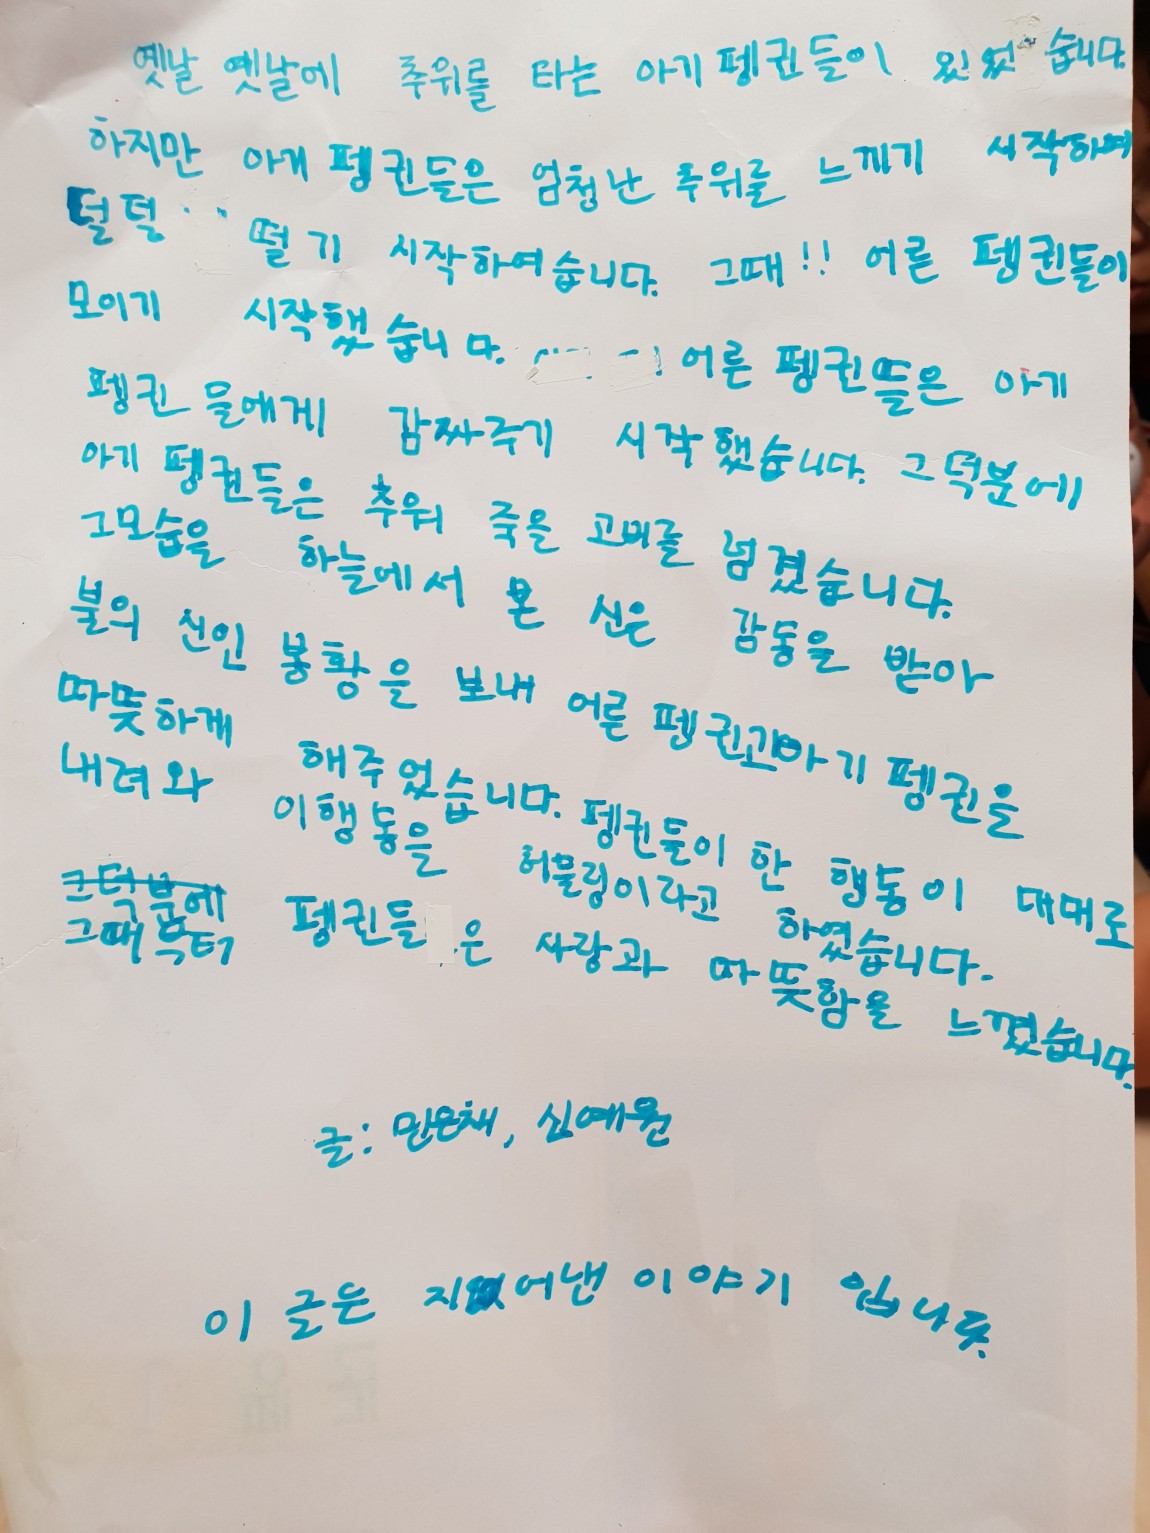 옛날 옛날에 추위를 타는 아기 펭귄들이 있었습니다.
하지만 아기 펭귄들은 엄청난 추위를 느끼기 시작하여
덜덜·· 떨기 시작하여습니다. 그때!! 어른 펭귄들이
모이기 시작했습니다. 어른 펭귄들은 아기
펭귄들에게 감싸주기 시작했습니다. 그덕분에
아기 펭귄들은 추워 죽을 고비를 넘겼습니다.
그모습을 하늘에서 본 신은 감동을 받아
불의 신인 봉황을 보내 어른 펭귄과아기 펭귄을
따뜻하게 해주었습니다. 펭귄들이 한 행동이 대대로
내려와 이행동을 허믈링이라고 하였습니다.
그덕분에
그때부터 펭귄들은 사랑과 따뜻함을 느꼈습니다.
글: 민은채, 신예원
이 글은 지어낸 이야기 입니다.